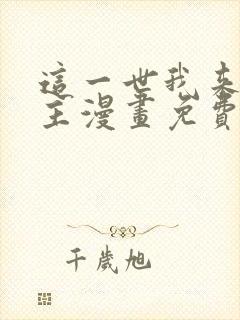 這一世我來
主漫畫免費
千歲旭